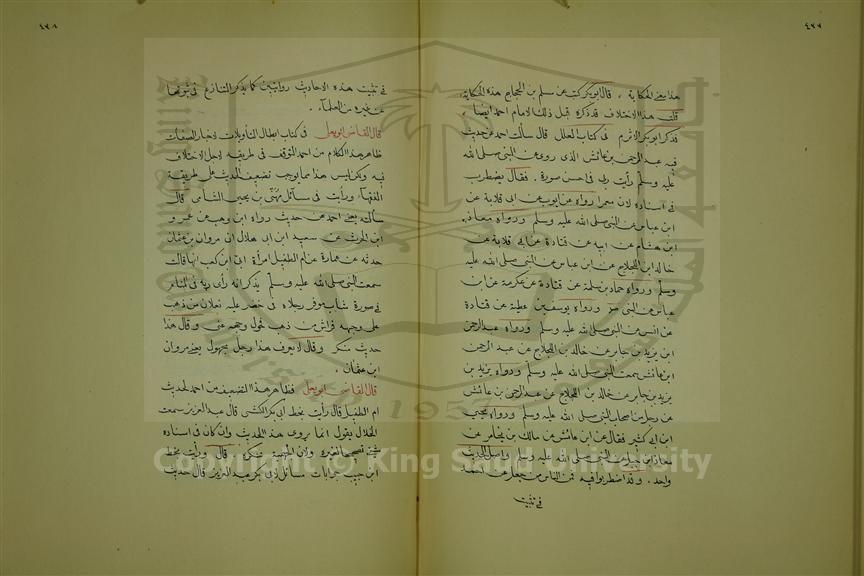 ٤٧٧
هذا معنى الحكاية ، قال ابو بكر كتب عن مسلم بن الحجاج هذه الحكاية
قلت هذا الاختلاف قد ذكره قبل ذلك الامام احمد ايضا ،
فذكر ابو بكر الاثرم في كتاب العلل قال سألت احمد عن حديث
فيه عبد الرحمن بن عائش الذى روى عن النبى صلى الله
عليه وسلم رأيت ربى فى احسن صورة . فقال يضطرب
فى اسناده لان معمرا رواه عن ايوب عن ابى قلابة عن
ابن عباس عن النبى صلى الله عليه وسلم ورواه معاذ
ابن هشام عن ابيه عن قتادة عن ابى قلابة عن
خالد ابن اللجلاج عن ابن عباس عن النبى صلى الله عليه
وسلم ورواه حماد بن سلمة عن قتادة عن عكرمة عن ابن
عباس عن النبى ورواه يوسف بن عطية عن قتادة
عن انس عن النبى صلى الله عليه وسلم ورواه عبد الرحمن
ابن يزيد بن جابر عن خالد بن اللجلاج عن عبد الرحمن
ابن عائش سمعت النبى صلى الله عليه وسلم ورواه يزيد بن
يزيد بن جابر عن خالد بن اللجلاج عن عبد الرحمن بن عائش
عن رجل من اصحاب النبى صلى الله عليه وسلم ورواه يحيى
ابن ابى كثير فقال عن ابن عائش عن مالك بن يخامر عن
معاذ ابن جبل عن النبى صلى الله عليه وسلم واصل الحديث
واحد . وقد اضطربوا فيه فمن الناس من يجعل عن احمد
فى تثبيت
٤٧٨
فى تثبيت هذه الاحاديث روايتين كما يذكر التنازع فى ثبوتها
عن غيره من العلماء .
قال القاضى ابو يعلى فى كتاب ابطال التأويلات لاخبار الصفات
ظاهر هذا الكلام من احمد التوقف فى طريقه لاجل الاختلاف
فيه ولكن ليس هذا مما يوجب تضعيف الحديث على طريقة
الفقهاء ورأيت فى مسائل مهنى بن يحيى الشامى قال
سألته يعنى احمد عن حديث رواه ابن وهب عن عمرو
ابن الحرث عن سعيد ابن ابى هلال ان مروان بن عثمان
حدثه عن عمارة عن ام الطفيل امرأة ابى ابن كعب انها قالت
سمعت النبى صلى الله عليه وسلم يذكر انه رأى ربه فى المنام
فى صورة شاب موفر رجلاه فى خضر عليه نعلان من ذهب
على وجهه فراش من ذهب فحول وجهه عنى وقال هذا
حديث منكر وقال لا يعرف هذا رجل مجهول يعنى مروان
ابن عثمان .
قال القاضى ابو يعلى فظاهر هذا التضعيف من احمد لحديث
ام الطفيل قال رأيت بخط ابى بكر الكشى قال عبد العزيز سمعت
الخلال يقول انما يروى هذا الحديث وان كان فى اسناده
شئ تصحيحا لغيره ولان الجهمية تنكره . قال ورأيت بخط
ابن حبيب جوابات مسائل لابى بكر عبد العزيز قال حديث
Copyright © King Saud University
1957